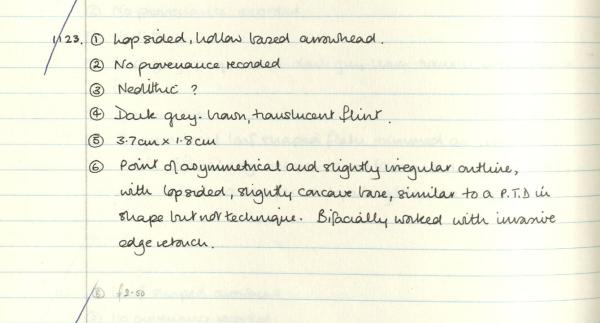 1123. ① Lopsided, hollow based arrowhead.
② No provenance recorded
③ Neolithic ?
④ Dark grey-brown, translucent flint.
⑤ 3.7cm x 1.8cm
⑥ Point of asymmetrical and slightly irregular outline,
with lopsided, slightly concave base, similar to a P.T.D in
shape but not technique. Bifacially worked with invasive
edge retouch.
⑧ £2.50